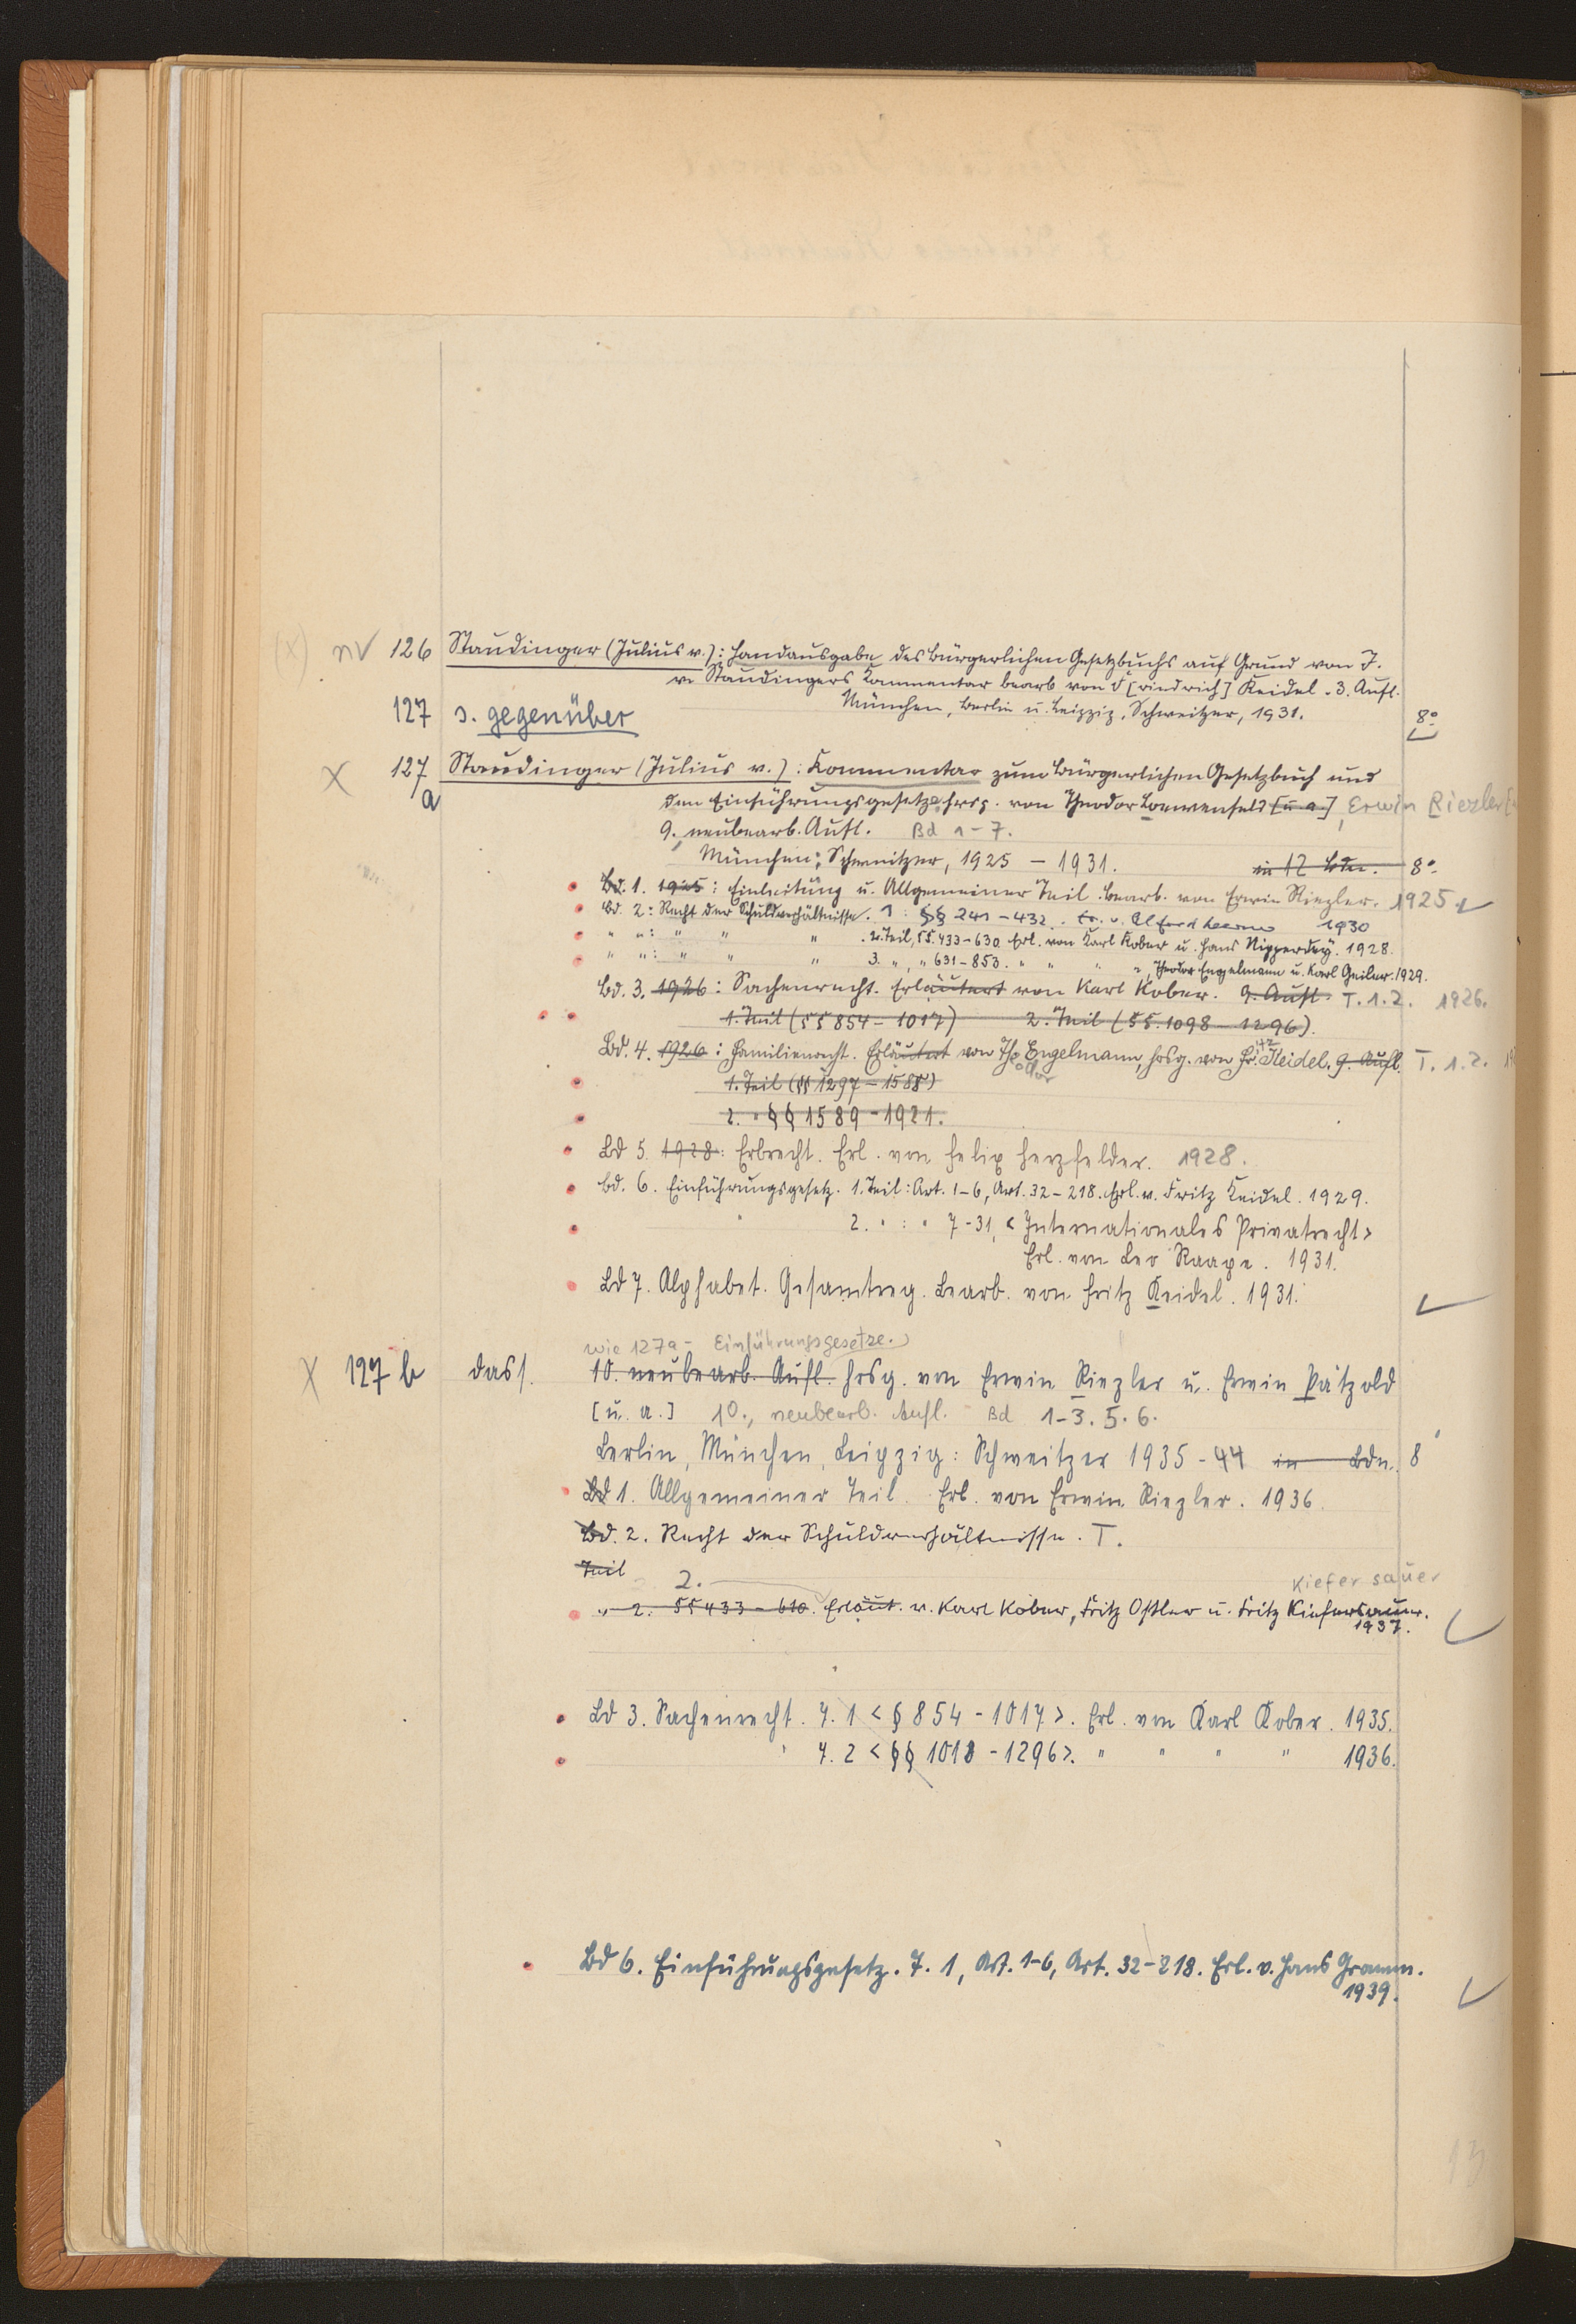 (x) nv 126 Staudinger (Julius v.): Handausgabe des Bürgerlichen Gesetzbuchs auf Grund von J.
v. Staudingers Kommentar bearb von F[riedrich] Keidel. 3. Aufl.
München, Berlin u. Leipzig, Schweitzer, 1931. 8°
127 s. gegenüber
X 127a Staudinger (Julius v.): Kommentar zum Bürgerlichen Gesetzbuch und
dem Einführungsgesetze hrsg. von Theodor Loewenfeld [u. a.], Erwin Riezler
9. neubearb. Aufl. Bd 1-7.
München: Schweitzer, 1925 - 1931. in 12 Bdn. 8°
Bd. 1. 1925: Einleitung u. Allgemeiner Teil. Bearb. von Erwin Riezler. 1925
Bd. 2: Recht der Schuldverhältnisse. 1: §§ 241-432. Er. v. Alfred Werner 1930
" ": " " " . 2. Teil, §§. 433-630. Erl. von Karl Kober u. Hans Nipperdey. 1928.
" ": " " " 3. ", " 631-853. " " " ", Theodor Engelmann u. Karl Geiler. 1929.
Bd. 3. 1926: Sachenrecht. Erläutert von Karl Kober. 9. Aufl. T. 1. 2. 1926.
1. Teil (§§ 854-1017) 2. Teil (§§. 1098-1296).
Bd. 4. 1926: Familienrecht. Erläutert von Theodor Engelmann, hrsg. von Fritz Keidel. 9. Aufl. T. 1. 2.
1. Teil (§§ 1297-1588)
2. " §§ 1589-1921.
Bd 5. 1928: Erbrecht. Erl. von Felix Herzfelder. 1928.
Bd. 6. Einführungsgesetz. 1. Teil: Art. 1-6, Art. 32-218. Erl. v. Fritz Keidel. 1929.
" 2. " : " 7-31, <Internationales Privatrecht>
Erl. von Leo Raape. 1931.
Bd 7. Alphabet. Gesamtreg. Bearb. von Fritz Keidel. 1931.
wie 127a - Einführungsgesetze.
X 127 b dass. 10. neubearb. Aufl. hrsg. von Erwin Riezler u. Erwin Pätzold
[u. a.] 10., neubearb. Aufl. Bd 1-3. 5. 6.
Berlin, München, Leipzig: Schweitzer 1935-44 in Bdn. 8°
Bd 1. Allgemeiner Teil. Erl. von Erwin Riezler. 1936.
Bd. 2. Recht der Schuldverhältnisse. T.
Teil 2. Kiefersauer
" 2. §§ 433-610. Erläut. v. Karl Kober, Fritz Ostler u. Fritz Kiefersauer.
1937.
Bd 3. Sachenrecht. T. 1 <§ 854-1017>. Erl. von Karl Kober. 1935.
" T. 2 <§§ 1018-1296>. " " " " 1936.
Bd 6. Einführungsgesetz. T. 1, Art. 1-6, Art. 32-218. Erl. v. Hans Gramm.
1939.
13